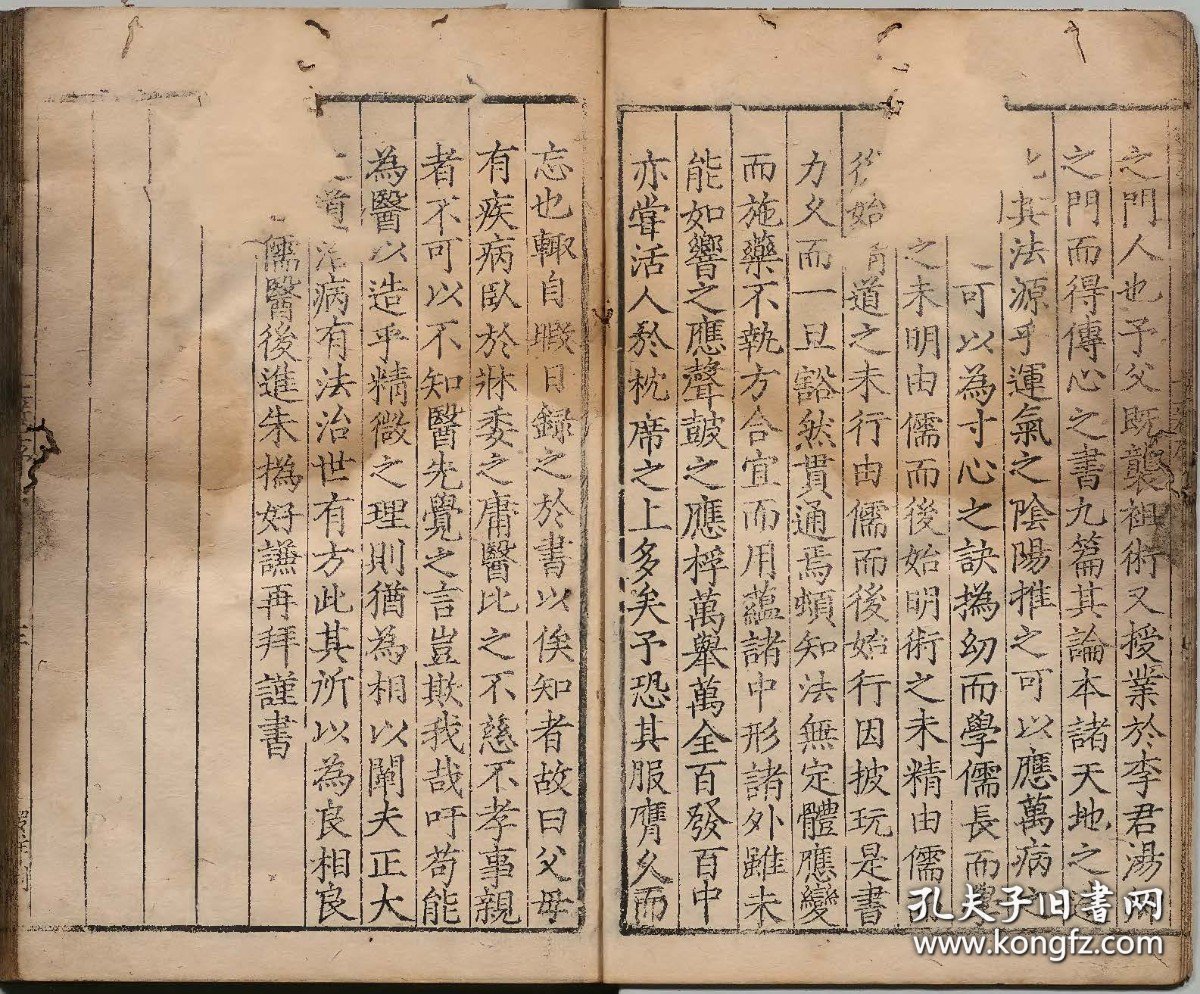 之門人也予父既襲祖術又授業於李君湯
之門而得傳心之書九篇其論本諸天地之
其法源乎運氣之陰陽推之可以應萬病之
可以為寸心之訣撝幼而學儒長而學
之未明由儒而後始明術之未精由儒
後始精道之未行由儒而後始行因披玩是書
力久而一旦豁然貫通焉頓知法無定體應變
而施藥不執方合宜而用蘊諸中形諸外雖未
能如響之應聲鼓之應桴萬舉萬全百發百中
亦嘗活人於枕席之上多矣予恐其服膺久而
忘也輙自暇日錄之於書以俟知者故曰父母
有疾病臥於牀委之庸醫比之不慈不孝事親
者不可以不知醫先覺之言豈欺我哉吁苟能
為醫以造乎精微之理則猶為相以闡夫正大
之道治病有法治世有方此其所以為良相良
儒醫後進朱撝好謙再拜謹書
孔夫子旧书网
www.kongfz.com